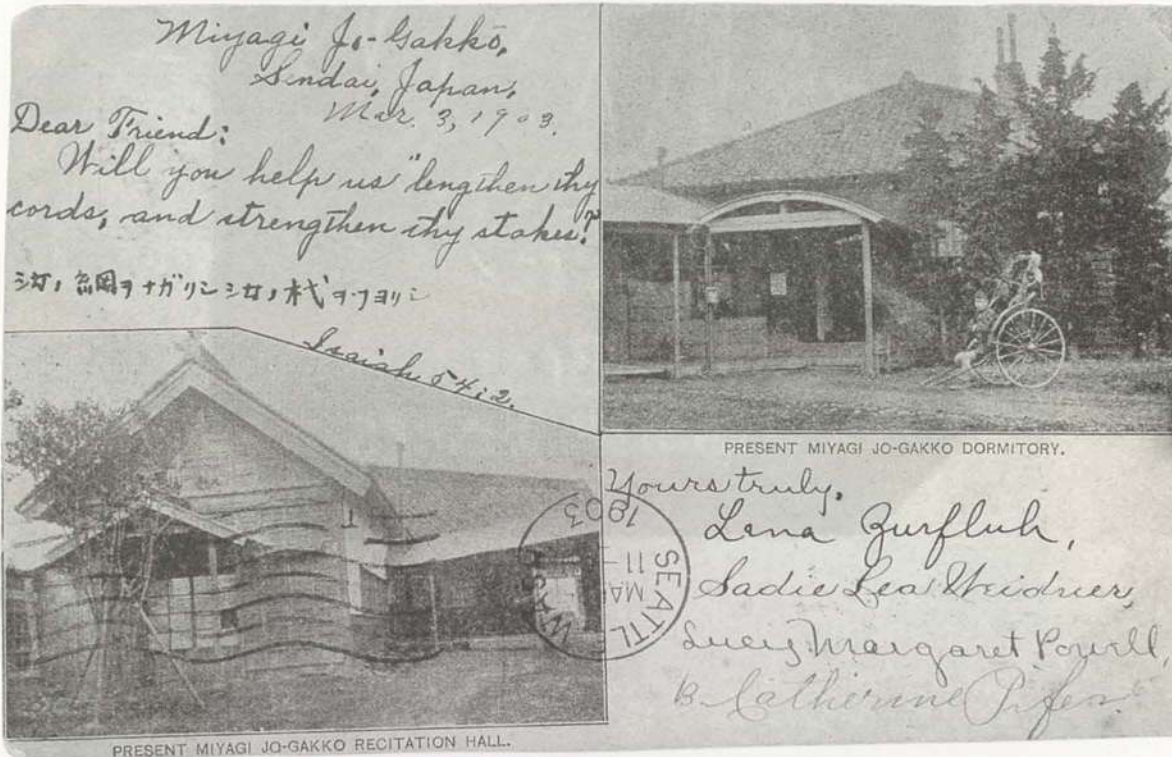 Miyagi Jo-Gakkō,
Sendai, Japan,
Mar. 3, 1903.
Dear Friend:
Will you help us "lengthen thy
cords, and strengthen thy stakes?"
汝ノ綱ヲナガクシ汝ノ杙ヲツヨクシ
Isaiah 54:2.
PRESENT MIYAGI JO-GAKKO DORMITORY.
Yours truly,
Lena Zurfluh,
Sadie Lea Weidner,
Lucy Margaret Powell,
B. Catherine Pifer.
SEATTL
WASH
MA
11
1903
PRESENT MIYAGI JO-GAKKO RECITATION HALL.